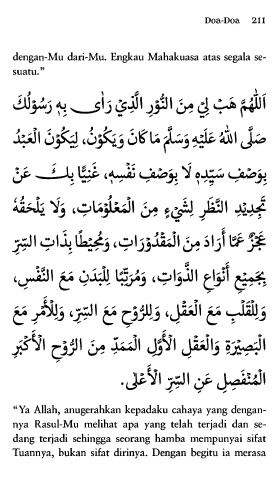 Doa-Doa 211
dengan-Mu dari-Mu. Engkau Mahakuasa atas segala se-
suatu.”
اَللّٰهُمَّ هَبْ لِيْ مِنَ النُّوْرِ الَّذِيْ رَاٰى بِهِ رَسُوْلُكَ
صَلَّى اللهُ عَلَيْهِ وَسَلَّمَ مَا كَانَ وَيَكُوْنُ، لِيَكُوْنَ الْعَبْدُ
بِوَصْفِ سَيِّدِهِ لَا بِوَصْفِ نَفْسِهِ، غَنِيًّا بِكَ عَنْ
تَجْدِيْدِ النَّظَرِ لِشَيْءٍ مِنَ الْمَعْلُوْمَاتِ، وَلَا يَلْحَقُهُ
عَجْزٌ عَمَّا أَرَادَ مِنَ الْمَقْدُوْرَاتِ، وَمُحِيْطًا بِذَاتِ السِّرِّ
بِجَمِيْعِ أَنْوَاعِ الذَّوَاتِ، وَمُرَتِّبًا لِلْبَدَنِ مَعَ النَّفْسِ،
وَلِلْقَلْبِ مَعَ الْعَقْلِ، وَلِلرُّوْحِ مَعَ السِّرِّ، وَلِلْأَمْرِ مَعَ
الْبَصِيْرَةِ وَالْعَقْلِ الْأَوَّلِ الْمُمَدِّ مِنَ الرُّوْحِ الْأَكْبَرِ
الْمُنْفَصِلِ عَنِ السِّرِّ الْأَعْلٰى.
“Ya Allah, anugerahkan kepadaku cahaya yang dengan-
nya Rasul-Mu melihat apa yang telah terjadi dan se-
dang terjadi sehingga seorang hamba mempunyai sifat
Tuannya, bukan sifat dirinya. Dengan begitu ia merasa